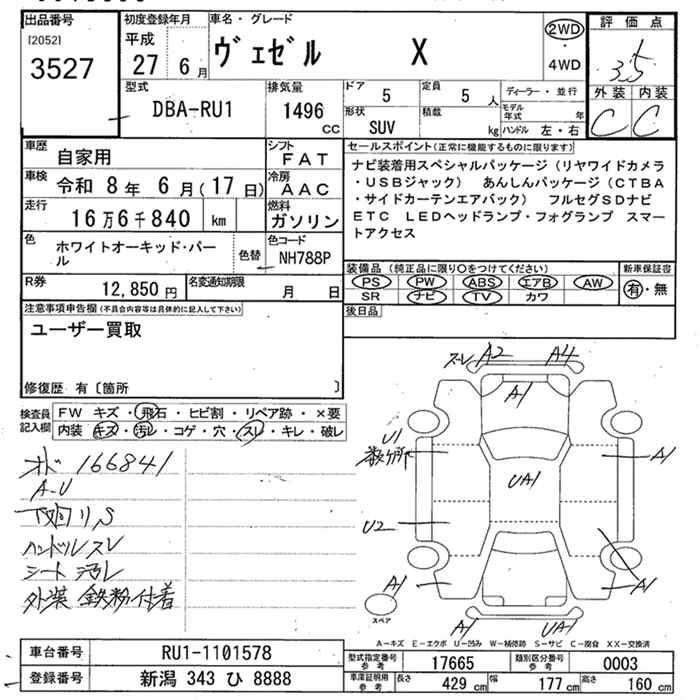 出品番号
[2052]
3527
初度登録年月
平成
27 6月
車名・グレード
ヴェゼル X
2WD
・
4WD
評価点
3.5
外装 内装
C C
型式
DBA-RU1
排気量
1496
CC
ドア 5
定員 5 人
形状
SUV
積載 kg
ディーラー・並行
モデル年式 年
ハンドル 左・右
車歴
自家用
シフト
FAT
車検
令和 8年 6月(17日)
冷房
AAC
走行
16万6千840 km
燃料
ガソリン
色
ホワイトオーキッド・パール
色替
色コード
NH788P
R券
12,850円
名変通知期限
月 日
セールスポイント(正常に機能するものに限ります)
ナビ装着用スペシャルパッケージ(リヤワイドカメラ
・USBジャック) あんしんパッケージ(CTBA
・サイドカーテンエアバック) フルセグSDナビ
ETC LEDヘッドランプ・フォグランプ スマー
トアクセス
装備品(純正品に限り○をつけてください)
PS PW ABS エアB AW
SR ナビ TV カワ
新車保証書
有・無
後日品
注意事項申告欄(不具合内容等は具体的に記入して下さい)
ユーザー買取
修復歴 有〔箇所 〕
検査員記入欄
FW キズ・飛石・ヒビ割・リペア跡・×要
内装 キズ・汚レ・コゲ・穴・スレ・キレ・破レ
オド 166841
A-U
下廻りS
ハンドルスレ
シート汚レ
外装 鉄粉付着
スレ A2 A4
A1
U1
数ヶ所
A1
UA1
U2
A1
A1
A1
UA1
スペア
A-キズ E-エクボ U-凹み W-補修跡 S-サビ C-腐食 XX-交換済
車台番号
RU1-1101578
登録番号
新潟 343 ひ 8888
型式指定番号
参考
17665
類別区分番号
参考
0003
車庫証明用
参考
長さ 429 cm
幅 177 cm
高さ 160 cm